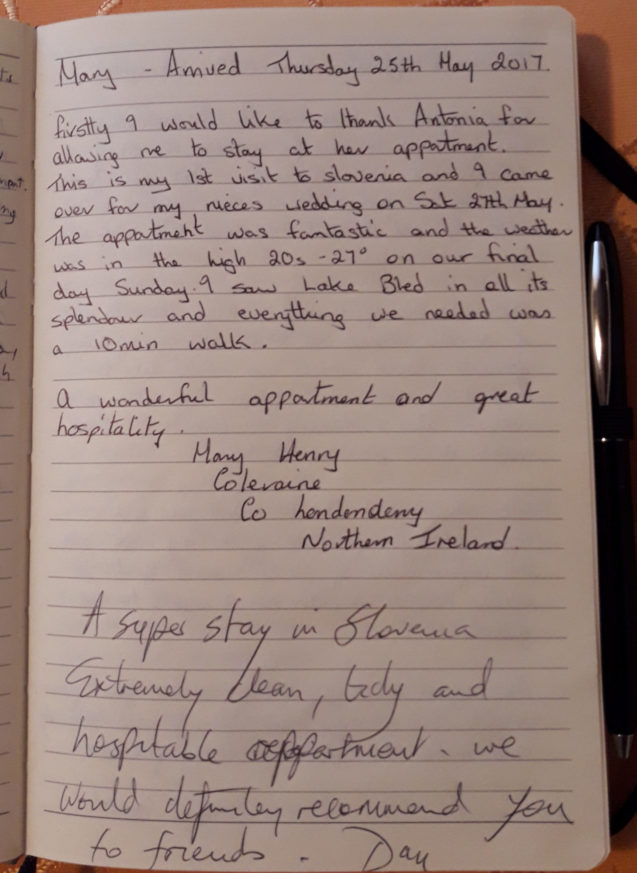 Mary - Arrived Thursday 25th May 2017.
firstly I would like to thank Antonia for
allowing me to stay at her appartment.
This is my 1st visit to slovenia and I came
over for my nieces wedding on Sat 27th May.
The appartment was fantastic and the weather
was in the high 20s - 27° on our final
day Sunday. I saw Lake Bled in all its
splendour and everything we needed was
a 10min walk.
A wonderful appartment and great
hospitality.
Mary Henry
Coleraine
Co Londonderry
Northern Ireland.
A super stay in Slovenia
Extremely clean, tidy and
hospitable appartment. we
would definitely recommend you
to friends.